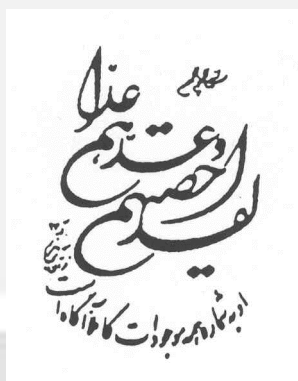 لقد احصیهم
و عدهم عدا
او به شماره همه موجودات کاملا آگاه است